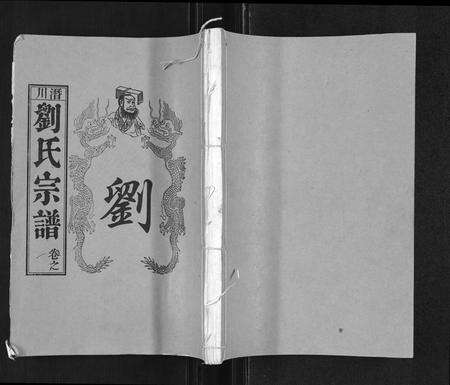 潛川
劉氏宗譜
卷之一
劉